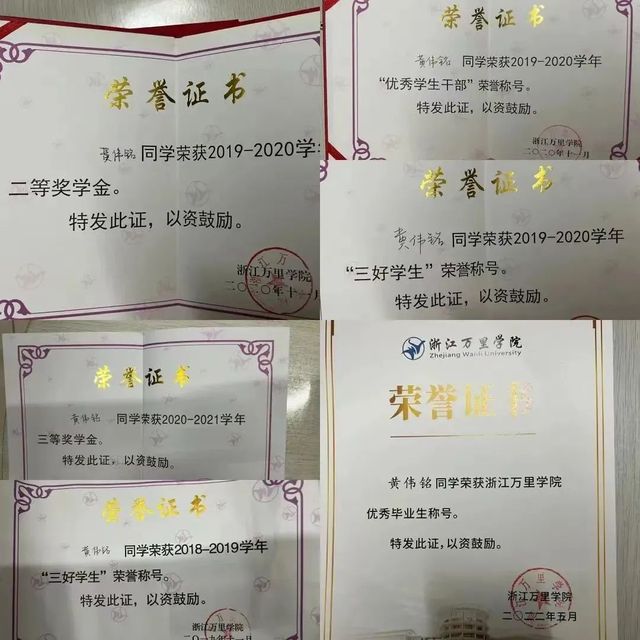 荣誉证书
黄伟铭 同学荣获2019-2020学年
二等奖学金。
特发此证，以资鼓励。
浙江万里学院
二〇二〇年十一月
荣誉证书
黄伟铭 同学荣获2019-2020学年
“优秀学生干部”荣誉称号。
特发此证，以资鼓励。
浙江万里学院
二〇二〇年十一月
荣誉证书
黄伟铭 同学荣获2019-2020学年
“三好学生”荣誉称号。
特发此证，以资鼓励。
荣誉证书
黄伟铭 同学荣获2020-2021学年
三等奖学金。
特发此证，以资鼓励。
荣誉证书
黄伟铭 同学荣获2018-2019学年
“三好学生”荣誉称号。
特发此证，以资鼓励。
浙江万里学院
二〇一九年十一月
浙江万里学院
Zhejiang Wanli University
荣誉证书
黄伟铭同学荣获浙江万里学院
优秀毕业生称号。
特发此证，以资鼓励。
浙江万里学院
二〇二二年五月